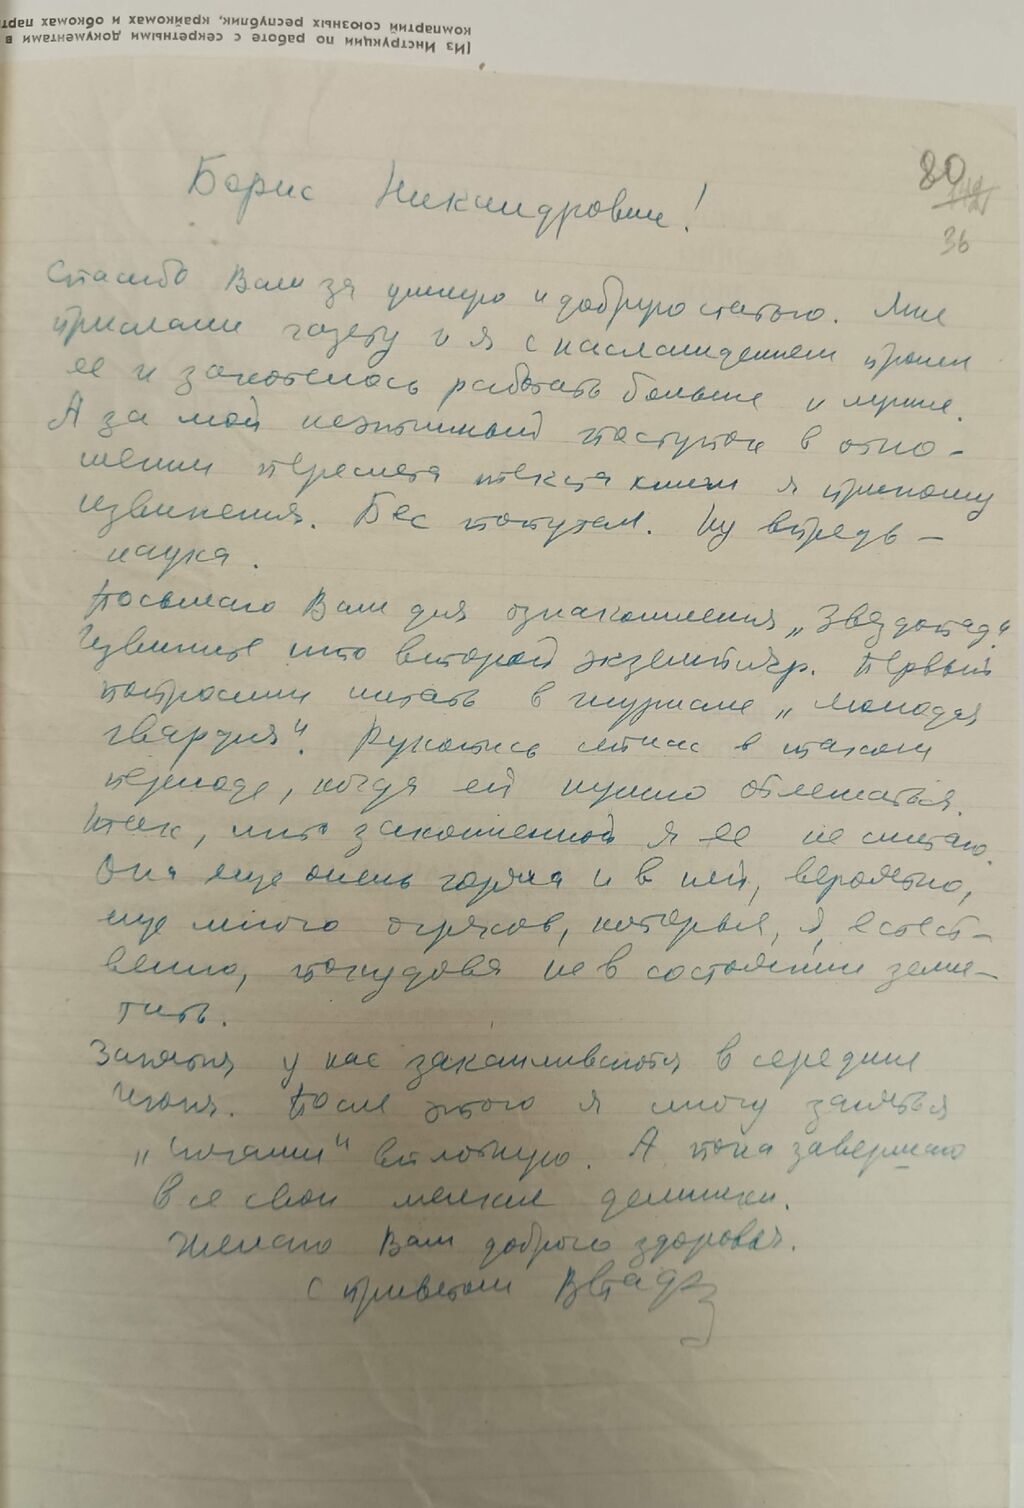 (Из Инструкции по работе с секретными документами в
компартий союзных республик, крайкомах и обкомах парт
80
36
Борис Никандрович!
Спасибо Вам за умную и добрую статью. Мне
прислали газету и я с наслаждением прочел
ее и захотелось работать больше и лучше.
А за мой неэтичный поступок в отно-
шении текста книги я приношу
извинения. Бес попутал. Ну впредь –
наука.
Посылаю Вам для ознакомления „Звездопад“
Извините что второй экземпляр. Первый
попросили читать в журнале „Молодая
гвардия“. Рукопись сейчас в таком
периоде, когда ей нужно отлежаться.
Итак, что законченной я ее не считаю.
Она еще очень горяча и в ней, вероятно,
еще много огрехов, которые, я, естест-
венно, покудова не в состоянии заме-
тить.
Занятия у нас заканчиваются в середине
июня. После этого я смогу заняться
вплотную. А пока завершаю
все свои мелкие делишки.
Желаю Вам доброго здоровья.
С приветом